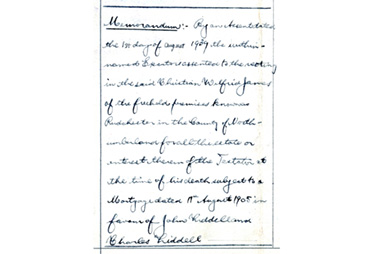 Memorandum:- By an Assent dated
the 1st day of August 1929 the within-
named Executors assented to the vesting
in the said Christian Wilfrid James
of the freehold premises known as
Rudchester in the County of North-
umberland for all the estate or
interest therein of the Testator at
the time of his death subject to a
Mortgage dated 1st August 1905 in
favour of John Liddell and
Charles Liddell